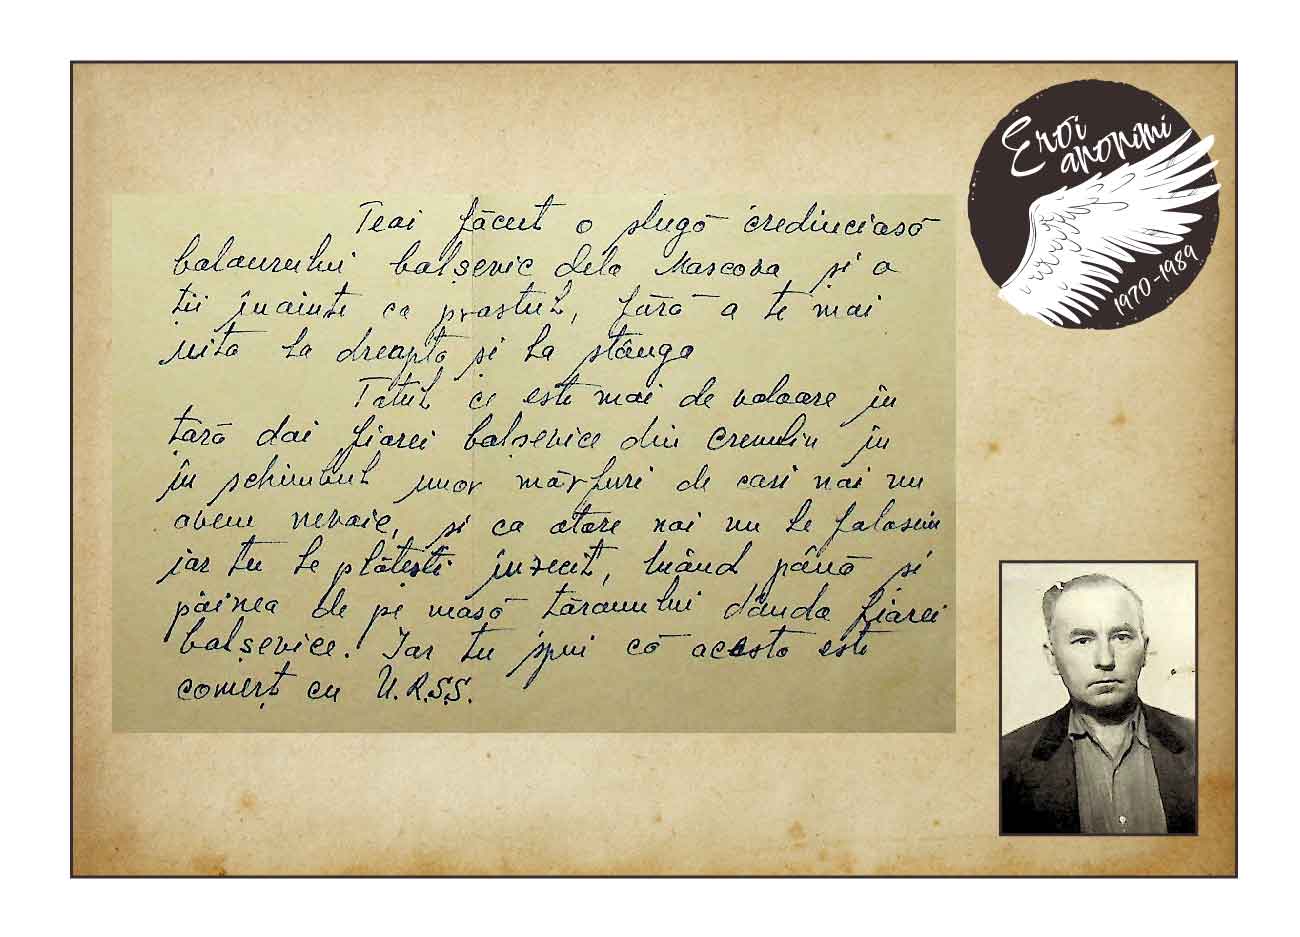 Eroi
anonimi
1970-1989
Teai făcut o slugă credincioasă
balaurului balșevic dela Moscova și o
ții înainte ca prostul, fără a te mai
uita la dreapta și la stânga
Totul ce este mai de valoare în
țară dai fiarei balșevice din Cremlin în
în schimbul unor mărfuri de cari noi nu
avem nevoie, și ca atare noi nu le folosim
iar tu le plătești înzecit, luând până și
pâinea de pe masă țăranului dândo fiarei
balșevice. Iar tu spui că acesta este
comerț cu U.R.S.S.